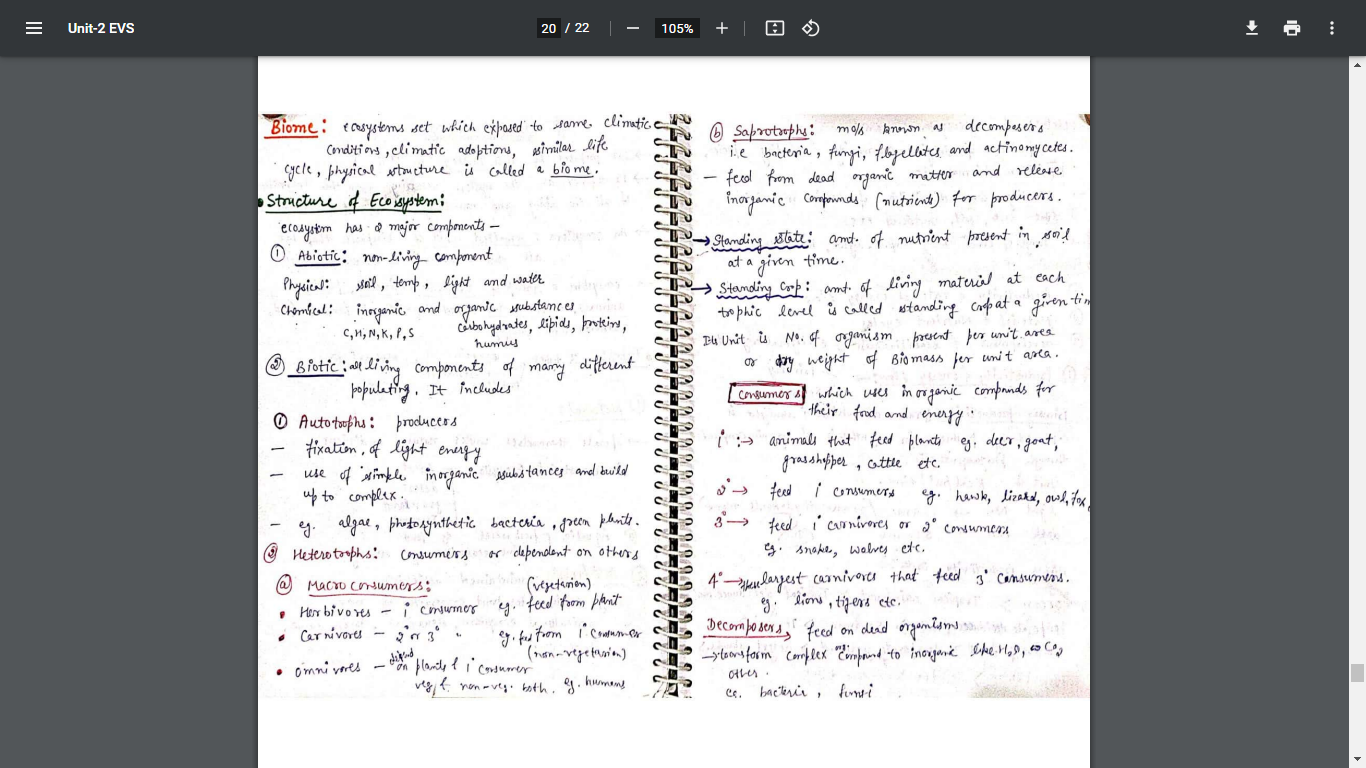 Unit-2 EVS
20 / 22
105%
Biome: ecosystems set which exposed to same climatic
conditions, climatic adoptions, similar life
cycle, physical structure is called a biome.
Structure of Ecosystem:
ecosystem has 2 major components –
① Abiotic: non-living component
Physical: soil, temp, light and water
Chemical: inorganic and organic substances
C, H, N, K, P, S carbohydrates, lipids, proteins,
humus
② Biotic: all living components of many different
populating. It includes
① Autotrophs: producers
– fixation of light energy
– use of simple inorganic substances and build
up to complex.
– eg. algae, photosynthetic bacteria, green plants.
② Heterotrophs: consumers or dependent on others
ⓐ Macro consumers: (vegetarion)
• Herbivores – 1° consumer eg. feed from plant
• Carnivores – 2° or 3° " eg. fed from 1° consumer
(non-vegetarion)
• omnivores – on plants & 1° consumer
veg. & non-veg. both. eg. humans
ⓑ Saprotrophs: mo/s known as decomposers
i.e bacteria, fungi, flagellates and actinomycetes.
– feed from dead organic matter and release
inorganic compounds (nutrients) for producers.
→ Standing state: amt. of nutrient present in soil
at a given time.
→ Standing Crop: amt. of living material at each
trophic level is called standing crop at a given tim
Its Unit is No. of organism present per unit area
or dry weight of Biomass per unit area.
Consumers which uses inorganic compunds for
their food and energy.
1° :→ animals that feed plants eg. deer, goat,
grasshopper, cattle etc.
2° → feed 1° consumers eg. hawk, lizard, owl, fox
3° → feed 1° carnivores or 2° consumers
eg. snake, wolves etc.
4° → largest carnivores that feed 3° consumers.
eg. lions, tigers etc.
Decomposers → feed on dead organisms
→ transform complex org. compound to inorganic like H₂O, CO₂
other.
eg. bacteria, fungi